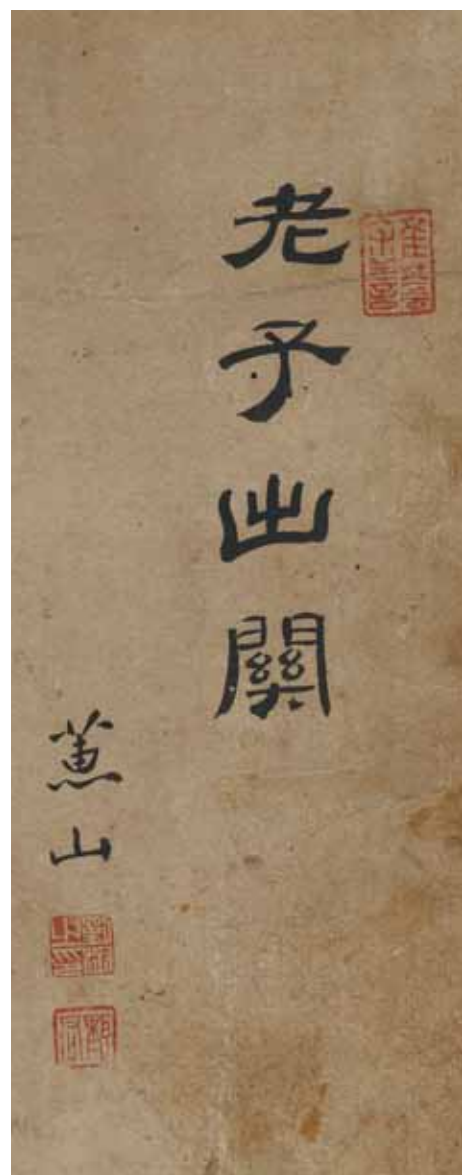 老子出關
蕙山